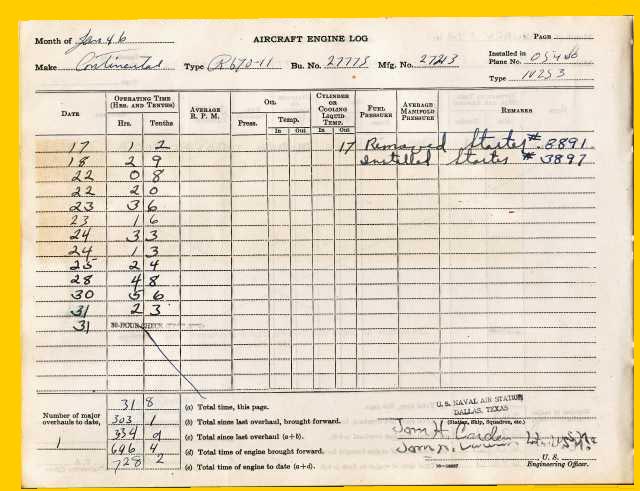 Month of Jan 46 AIRCRAFT ENGINE LOG PAGE
Make Continental Type R670-11 Bu. No. 27775 Mfg. No. 27213 Installed in Plane No. 05486
Type N2S3
DATE OPERATING TIME (HRS. AND TENTHS) Hrs. Tenths AVERAGE R. P. M. OIL Press. Temp. In Out CYLINDER OR COOLING LIQUID TEMP. In Out FUEL PRESSURE AVERAGE MANIFOLD PRESSURE REMARKS
17 1 2 17 Removed Starter # 8891
18 2 9 Installed Starter # 3897
22 0 8
22 2 0
23 3 6
23 1 6
24 3 3
24 1 3
25 2 4
28 4 8
30 5 6
31 2 3
31 30-HOUR CHECK
31 8 (a) Total time, this page.
Number of major overhauls to date, 1
303 1 (b) Total since last overhaul, brought forward.
334 9 (c) Total since last overhaul (a+b).
696 4 (d) Total time of engine brought forward.
728 2 (e) Total time of engine to date (a+d).
U.S. NAVAL AIR STATION
DALLAS, TEXAS
(Station, Ship, Squadron, etc.)
Tom H. Carden
U. S.
Engineering Officer.